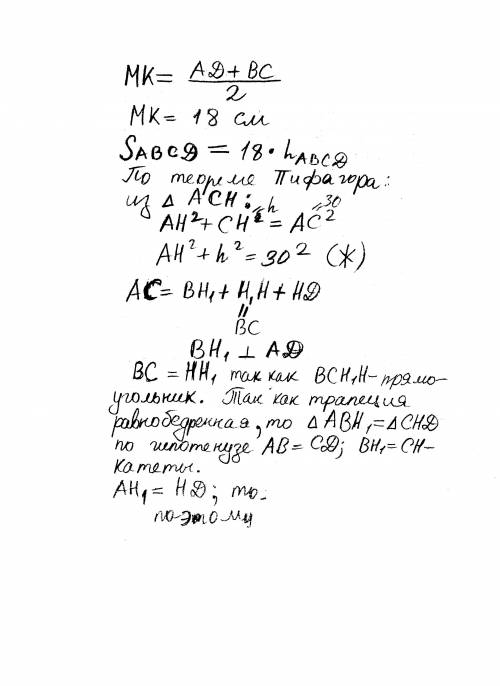 MK = AD + BC / 2
MK = 18 см
SABCD = 18 · hABCD
По теореме Пифагора:
из Δ ACH: =h =30
AH² + CH² = AC²
AH² + h² = 30² (*)
AC = BH₁ + H₁H + HD
=
BC
BH₁ ⊥ AD
BC = HH₁ так как BCH₁H - прямо-
угольник. Так как трапеция
равнобедренная, то Δ ABH₁ = Δ CHD
по гипотенузе AB = CD; BH₁ = CH -
катеты.
AH₁ = HD; то.
поэтому